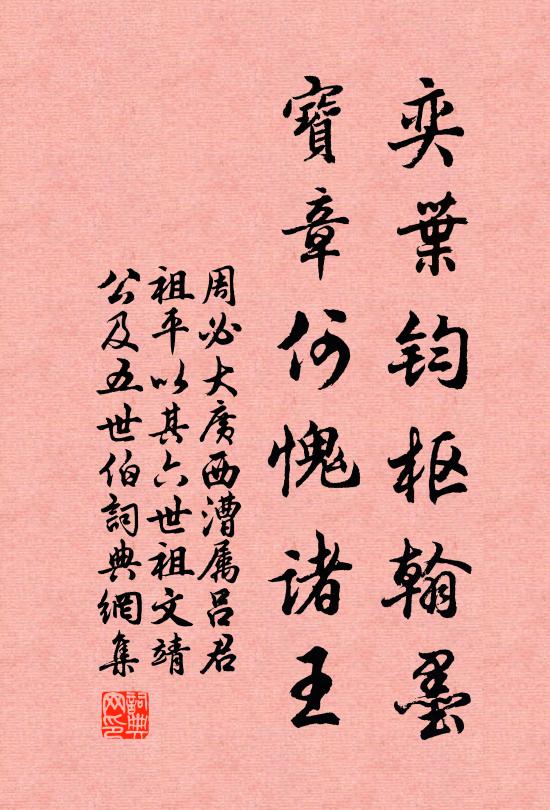 奕葉鈞枢翰墨
寶章何愧諸王
周必大廣西漕属吕君
祖平以其六世祖文靖
公及五世伯詞典網集
詞典网印